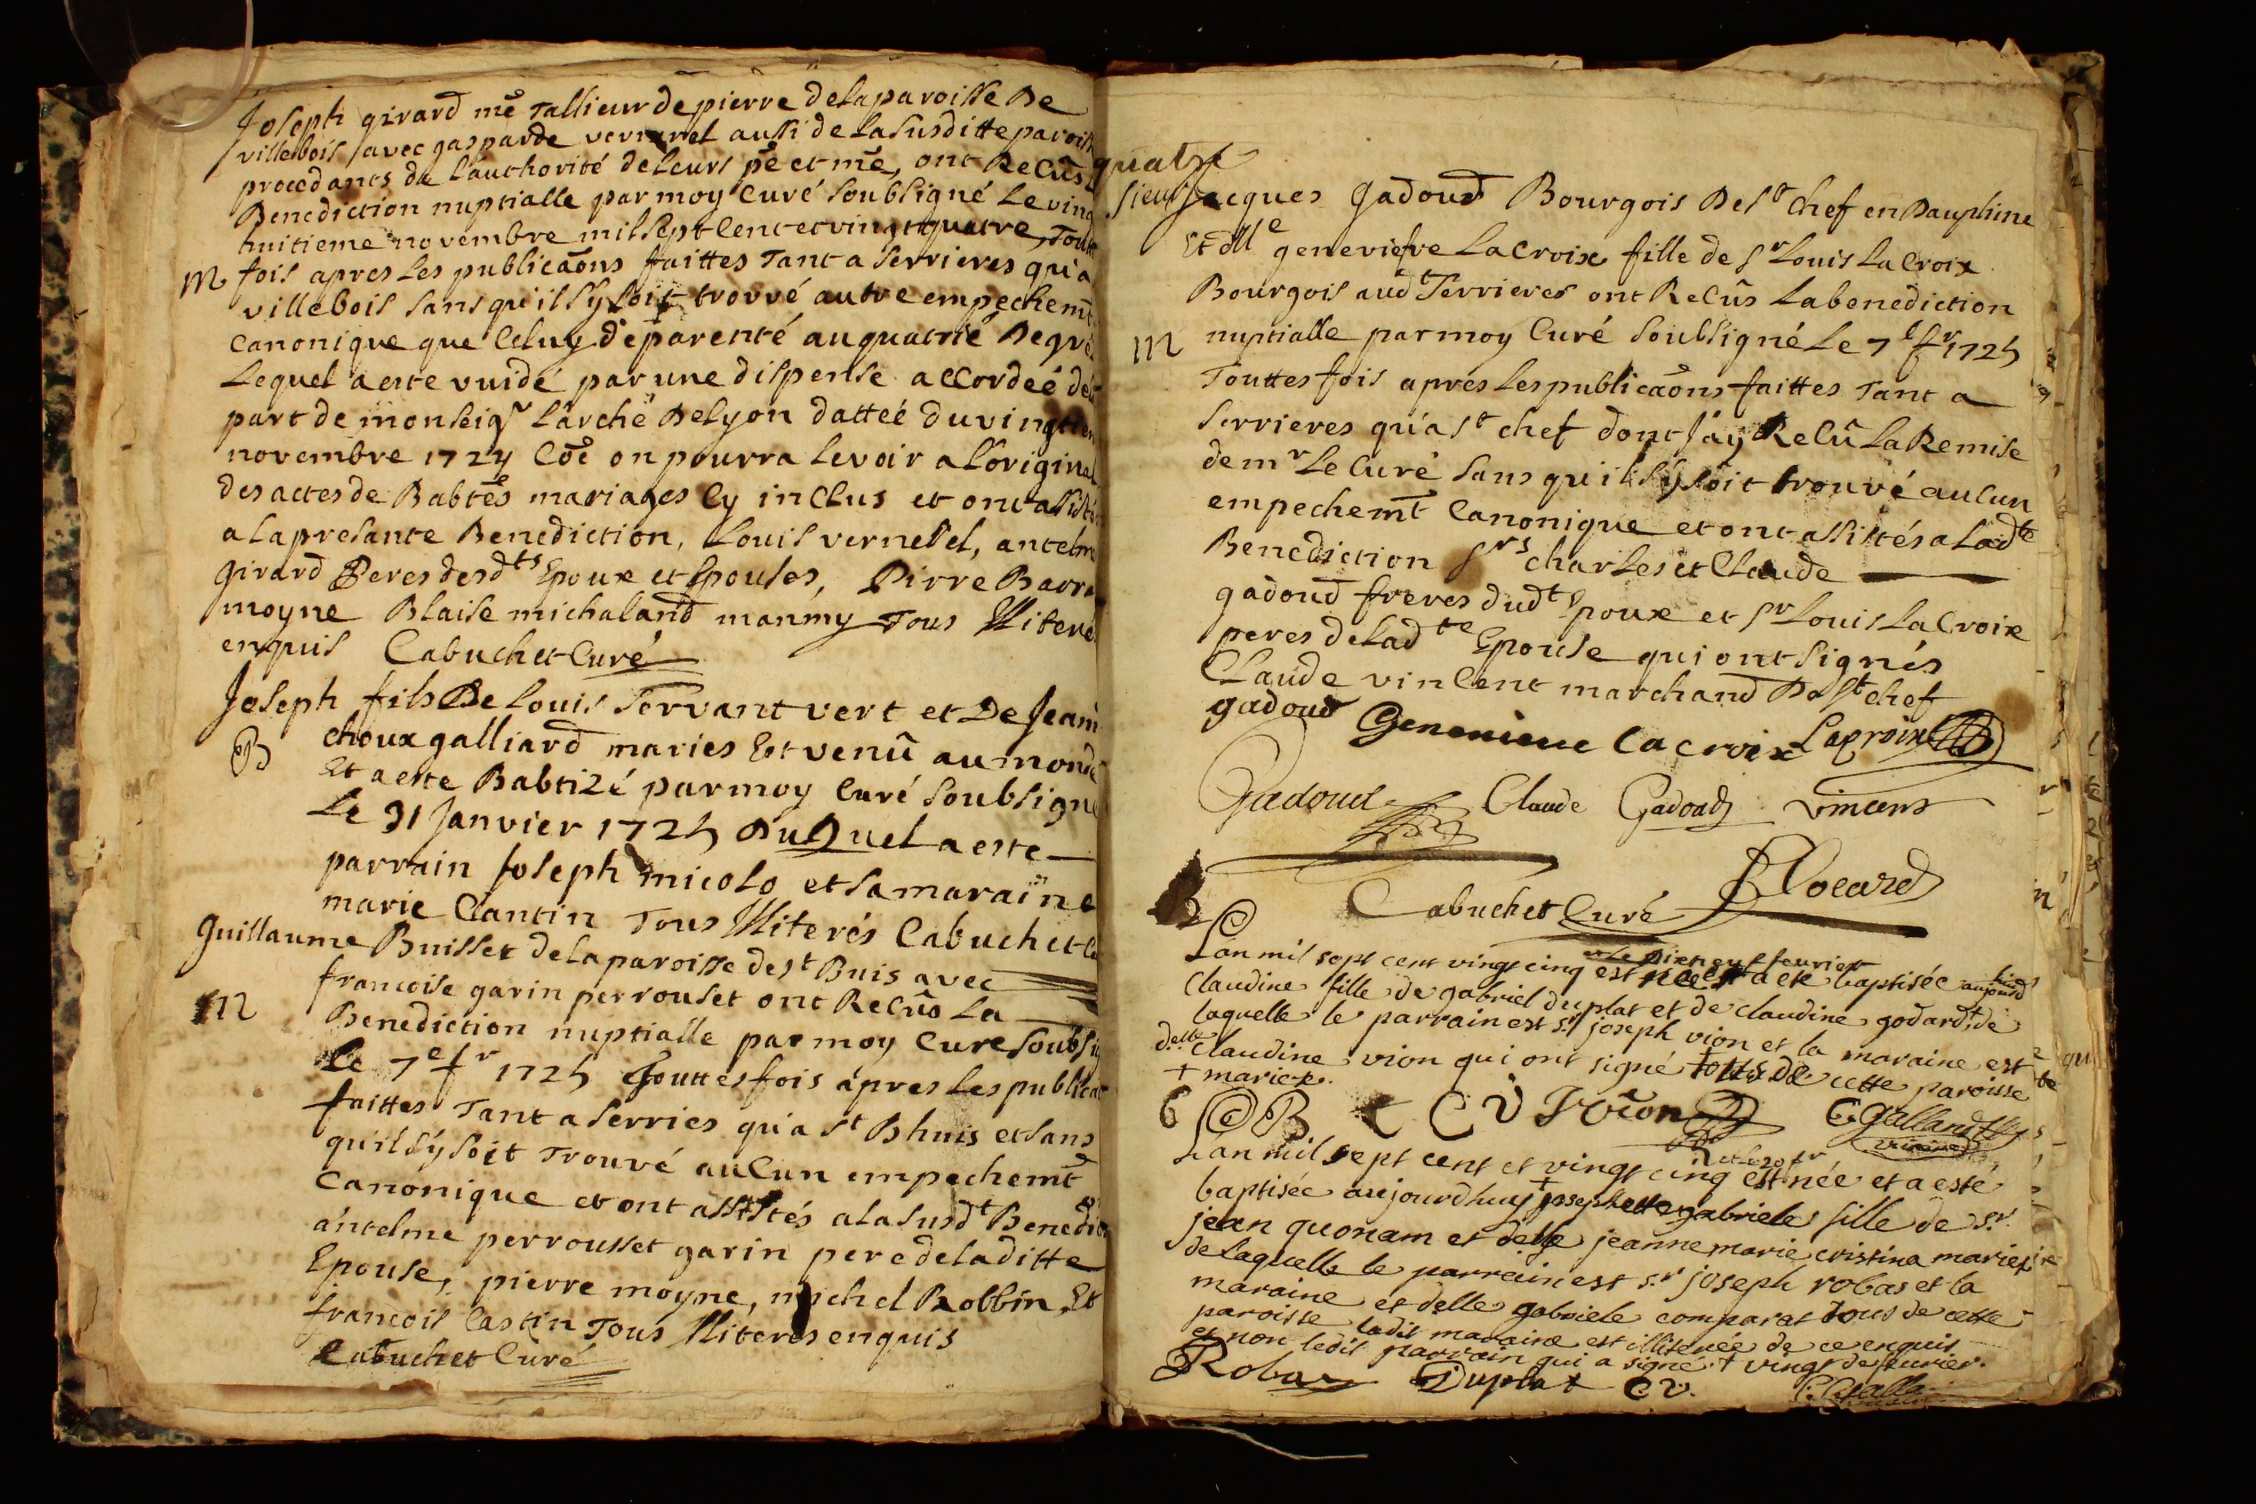 Joseph girard mē Tallieur de pierre de la paroisse De
villebois avec gasparde vernenel aussi de la susditte paroiss
procedants de l'authorité de leurs pē et mē, ont Recûs
Benediction nuptialle par moy Curé soubsigné Le ving
huitieme novembre mil sept cent et vingt quatre, Toute
M fois apres les publicaōns faittes Tant a serrieres qu'a
villebois sans qu'il sy soit trouvé autre empechemt̄
canonique que Celuy de parenté au quatrié Degré
Lequel a este vuidé par une dispense accordeé de
part de monseigr Larchē De Lyon datteé du vingt
novembre 1724 Coē on pourra le voir a l'original
des actes de Babtēs mariages Cy inclus et ont assisté
a la presante Benediction, Louis vernesel, antelme
girard Peres desdts Epoux et Epouses, Pirre Barra
moyne Blaise michaland manmy Tous Illiterés
enquis Cabuchet Curé
Joseph fils De Louis servant vert et De Jeann
B choux galliard maries Est venû au monde
Et a este Babtizé par moy Curé soubsigné
Le 31 Janvier 1725 Duquel a este
parrain Joseph micolo et sa maraine
marie Cantin Tous Illiterés Cabuchet C
Guillaume Buisset de la paroisse de st Buis avec
francoise garin perrouset ont Recûs La
M Benediction nuptialle par moy Cure soubsig
Le 7e fr 1725 Jouttesfois apres les publica
faittes Tant a serries qu'a st Bhuis et sans
qu'il sy soit Trouvé auCun empechemt̄
Canonique et ont assistés a la susdt Benedion
antelme perrousset garin pere de laditte
Epouse, pierre moyne, michel Robbin, Et
francois Castin Tous Illiteres enquis
Cabuchet Curé
quatre
sieur Jacques Gadoud Bourgois De st chef en Dauphine
Et dlle geneviefve LaCroix fille de sr Louis LaCroix
Bourgois audt serrieres ont Recûs La benediction
M nuptialle par moy Curé soubsigné Le 7e fr 1725
Touttes fois aprés les publicaōns faittes Tant a
serrieres qu'a st chef dont J'ay Recû La Remise
de mr Le Curé sans qu'il sy soit trouvé auCun
empechemt̄ Canonique et ont assistés a Ladte
Benediction srs charles et Claude
gadoud freres dudt Epoux et sr Louis LaCroix
peres de Ladte Epouse qui ont signés
Claude vincent marchand De st chef
gadoud Genevieve Lacroix Lacroix
Gadoud Claude Gadoud vincent
Cabuchet Curé
Lan mil sept cent vingt cinq et le dix neuf feurier est née et a été baptisée aujourd'hui
Claudine fille de gabriel duplat et de claudine godard, de
laquelle le parrain est sr joseph vion et la maraine est
delle claudine vion qui ont signé tous de cette paroisse
+ mariez.
B C V Vion C Galland
vicaire
Lan mil sept cent et vingt cinq et le 20 fr est née et a esté
baptisée aujourdhuy + josephette gabriele fille de sr
jean quonam et delle jeanne marie cristina mariez
de laquelle le parrain est sr joseph robas et la
maraine et delle gabriele comparat tous de cette
paroisse ladit maraine est illiterée de ce enquis
et non ledit parrain qui a signé. + vingt de feurier.
Robas Duplat C V.